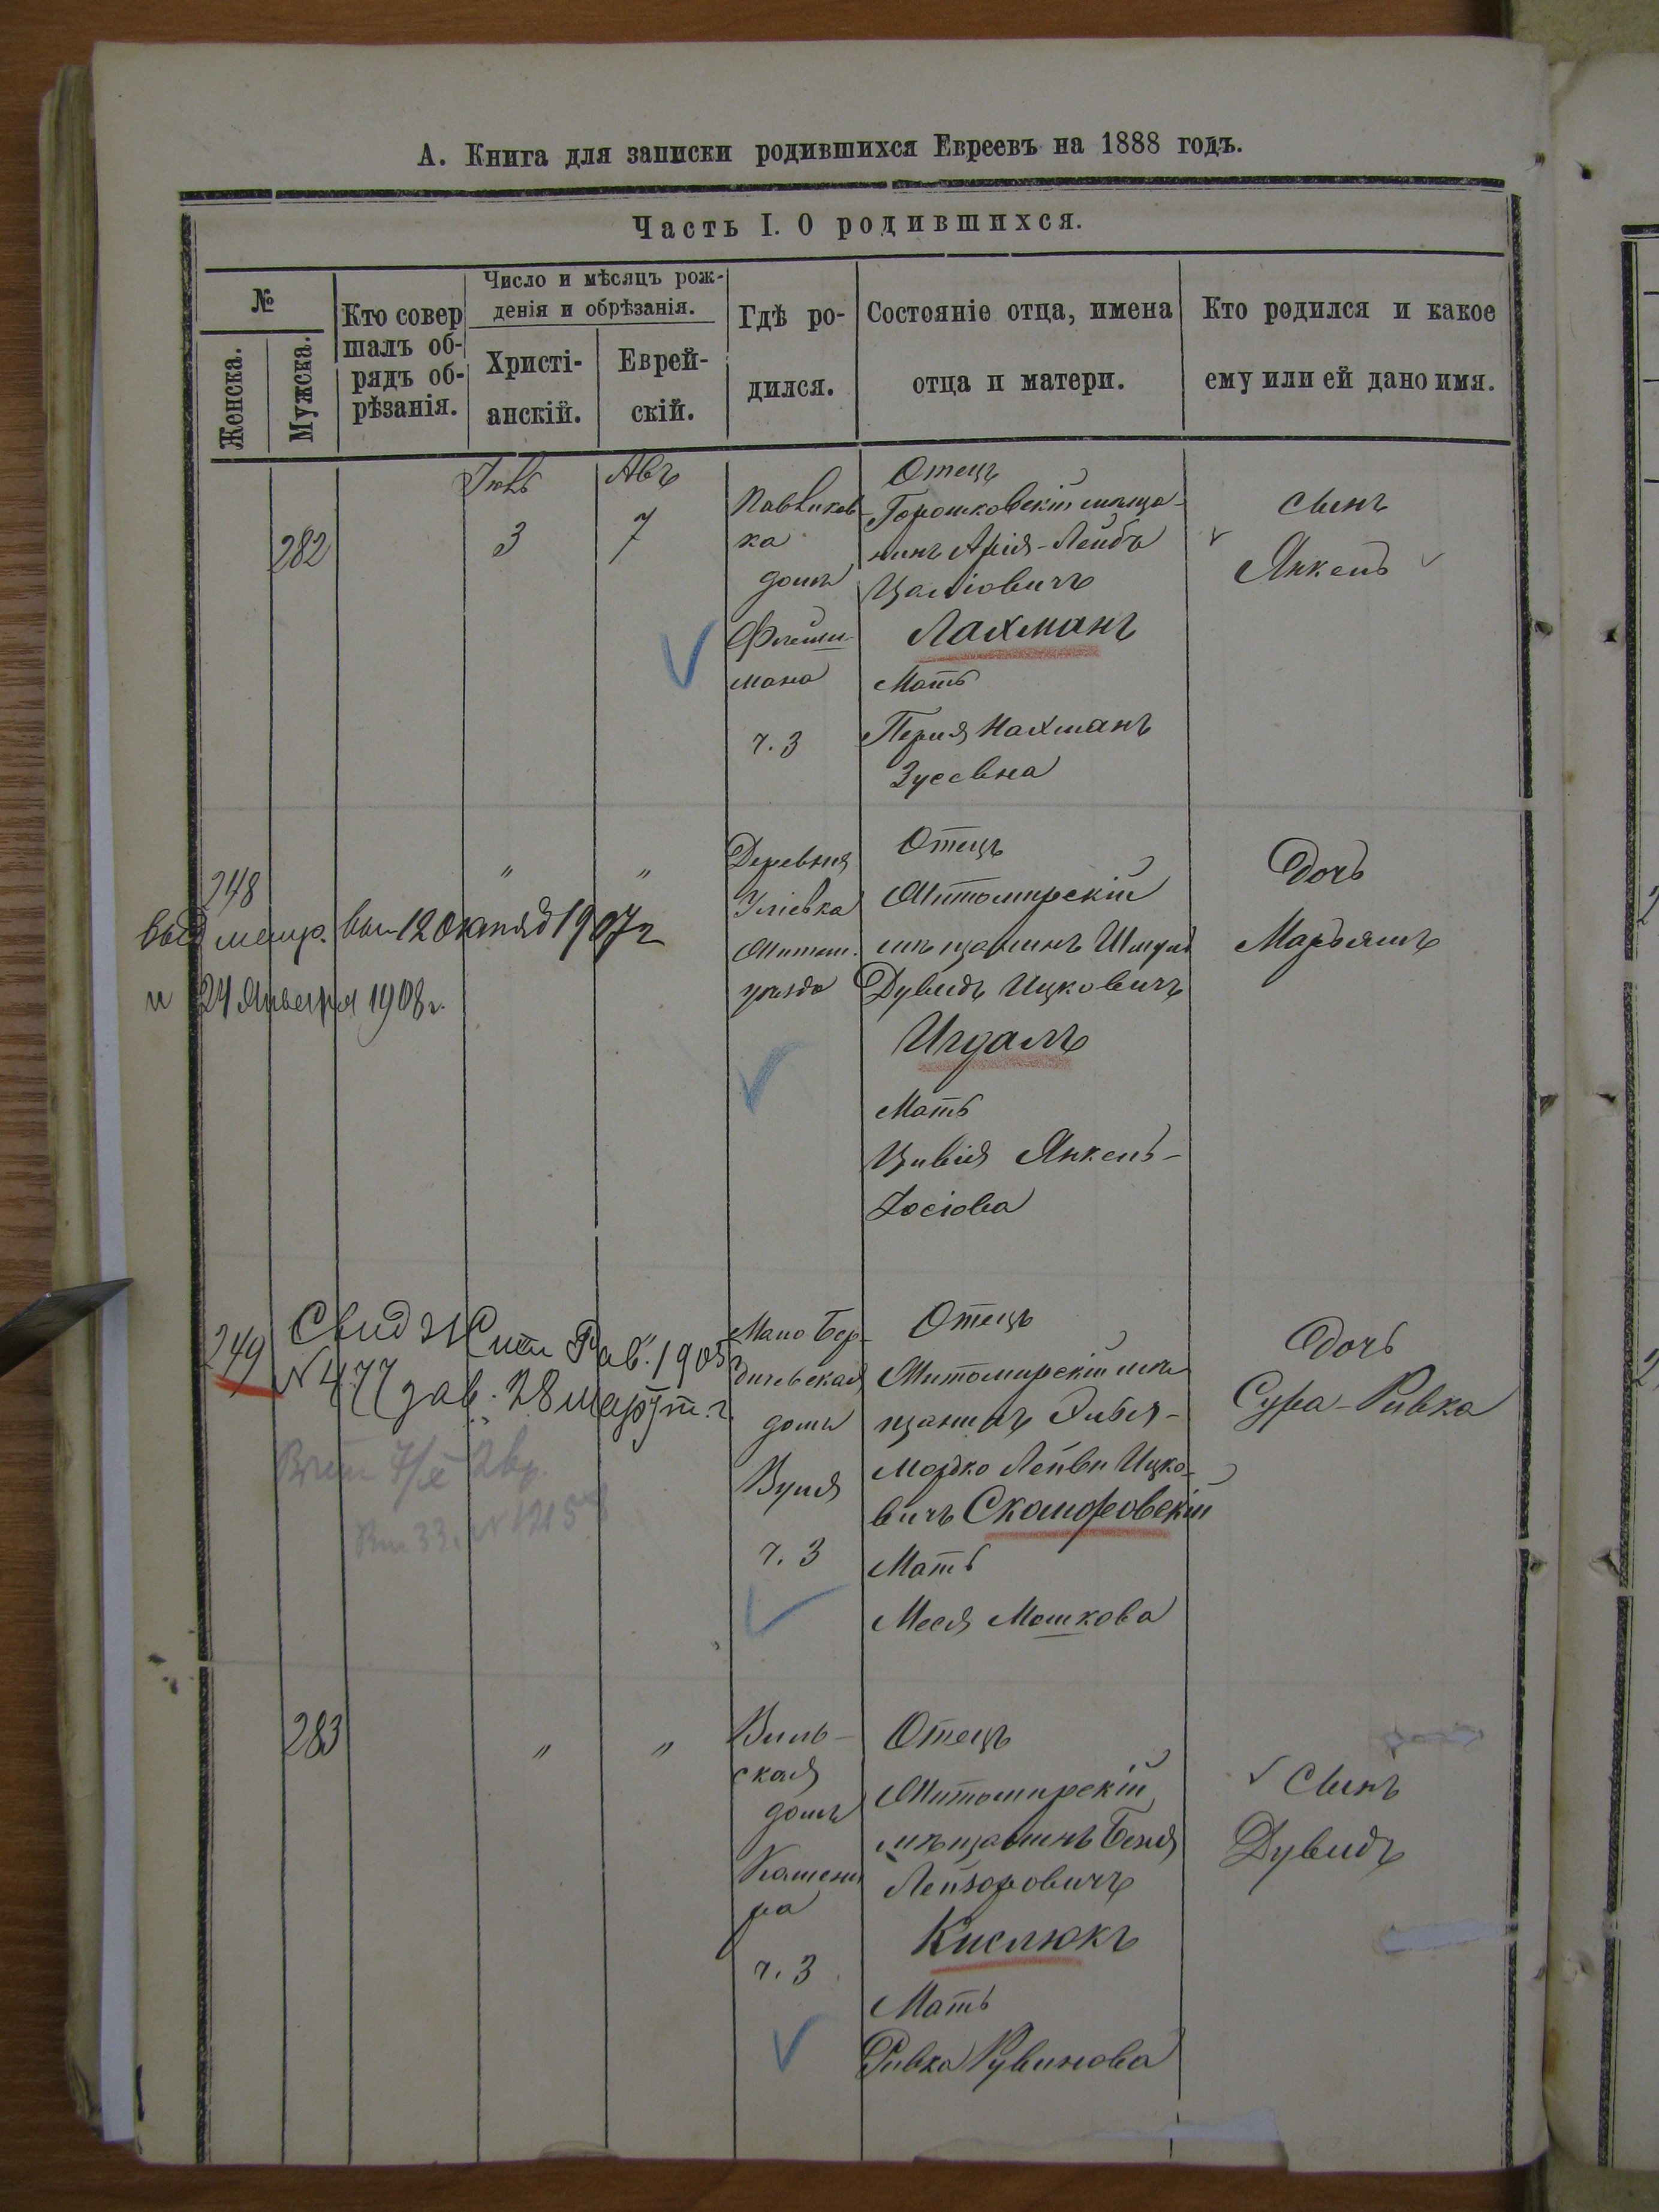 А. Книга для записки родившихся Евреевъ на 1888 годъ.
Часть I. О родившихся.
№
Женска.
Мужска.
Кто совер
шалъ об-
рядъ об-
рѣзанія.
Число и мѣсяцъ рож-
денія и обрѣзанія.
Христі-
анскій.
Еврей-
скій.
Гдѣ ро-
дился.
Состояніе отца, имена
отца и матери.
Кто родился и какое
ему или ей дано имя.
282
Іюль
3
Авъ
7
ка
домъ
мана
ч. 3
Отецъ
Горошковскій мѣща-
нинъ Арія-Лейбъ
Цаліовичъ
Лахманъ
Мать
Перля Нахманъ
Зусевна
Сынъ
Янкель
248
выд метр. вып 12 октяб 1907 г
и 24 Января 1908 г.
"
"
Деревня
Житом.
уѣзда
Отецъ
Житомирскій
мѣщанинъ Шмуль
Дувидъ Ицковичъ
Игдалъ
Мать
Цивія Янкель-
Іосіова
Дочь
Марьямъ
249
Свид
№ 477 зав. 28 март т. г.
Мало Бер-
дичевская
домъ
ч. 3
Отецъ
Житомирскій мѣ
щанинъ
Мордко Лейви Ицко-
вичъ Скоморовскій
Мать
Мося Мошкова
Дочь
Сура-Ривка
283
"
"
Виль-
ская
домъ
ра
ч. 3
Отецъ
Житомирскій
мѣщанинъ Беня
Лейзоровичъ
Кислюкъ
Мать
Ривка Рувинова
Сынъ
Дувидъ